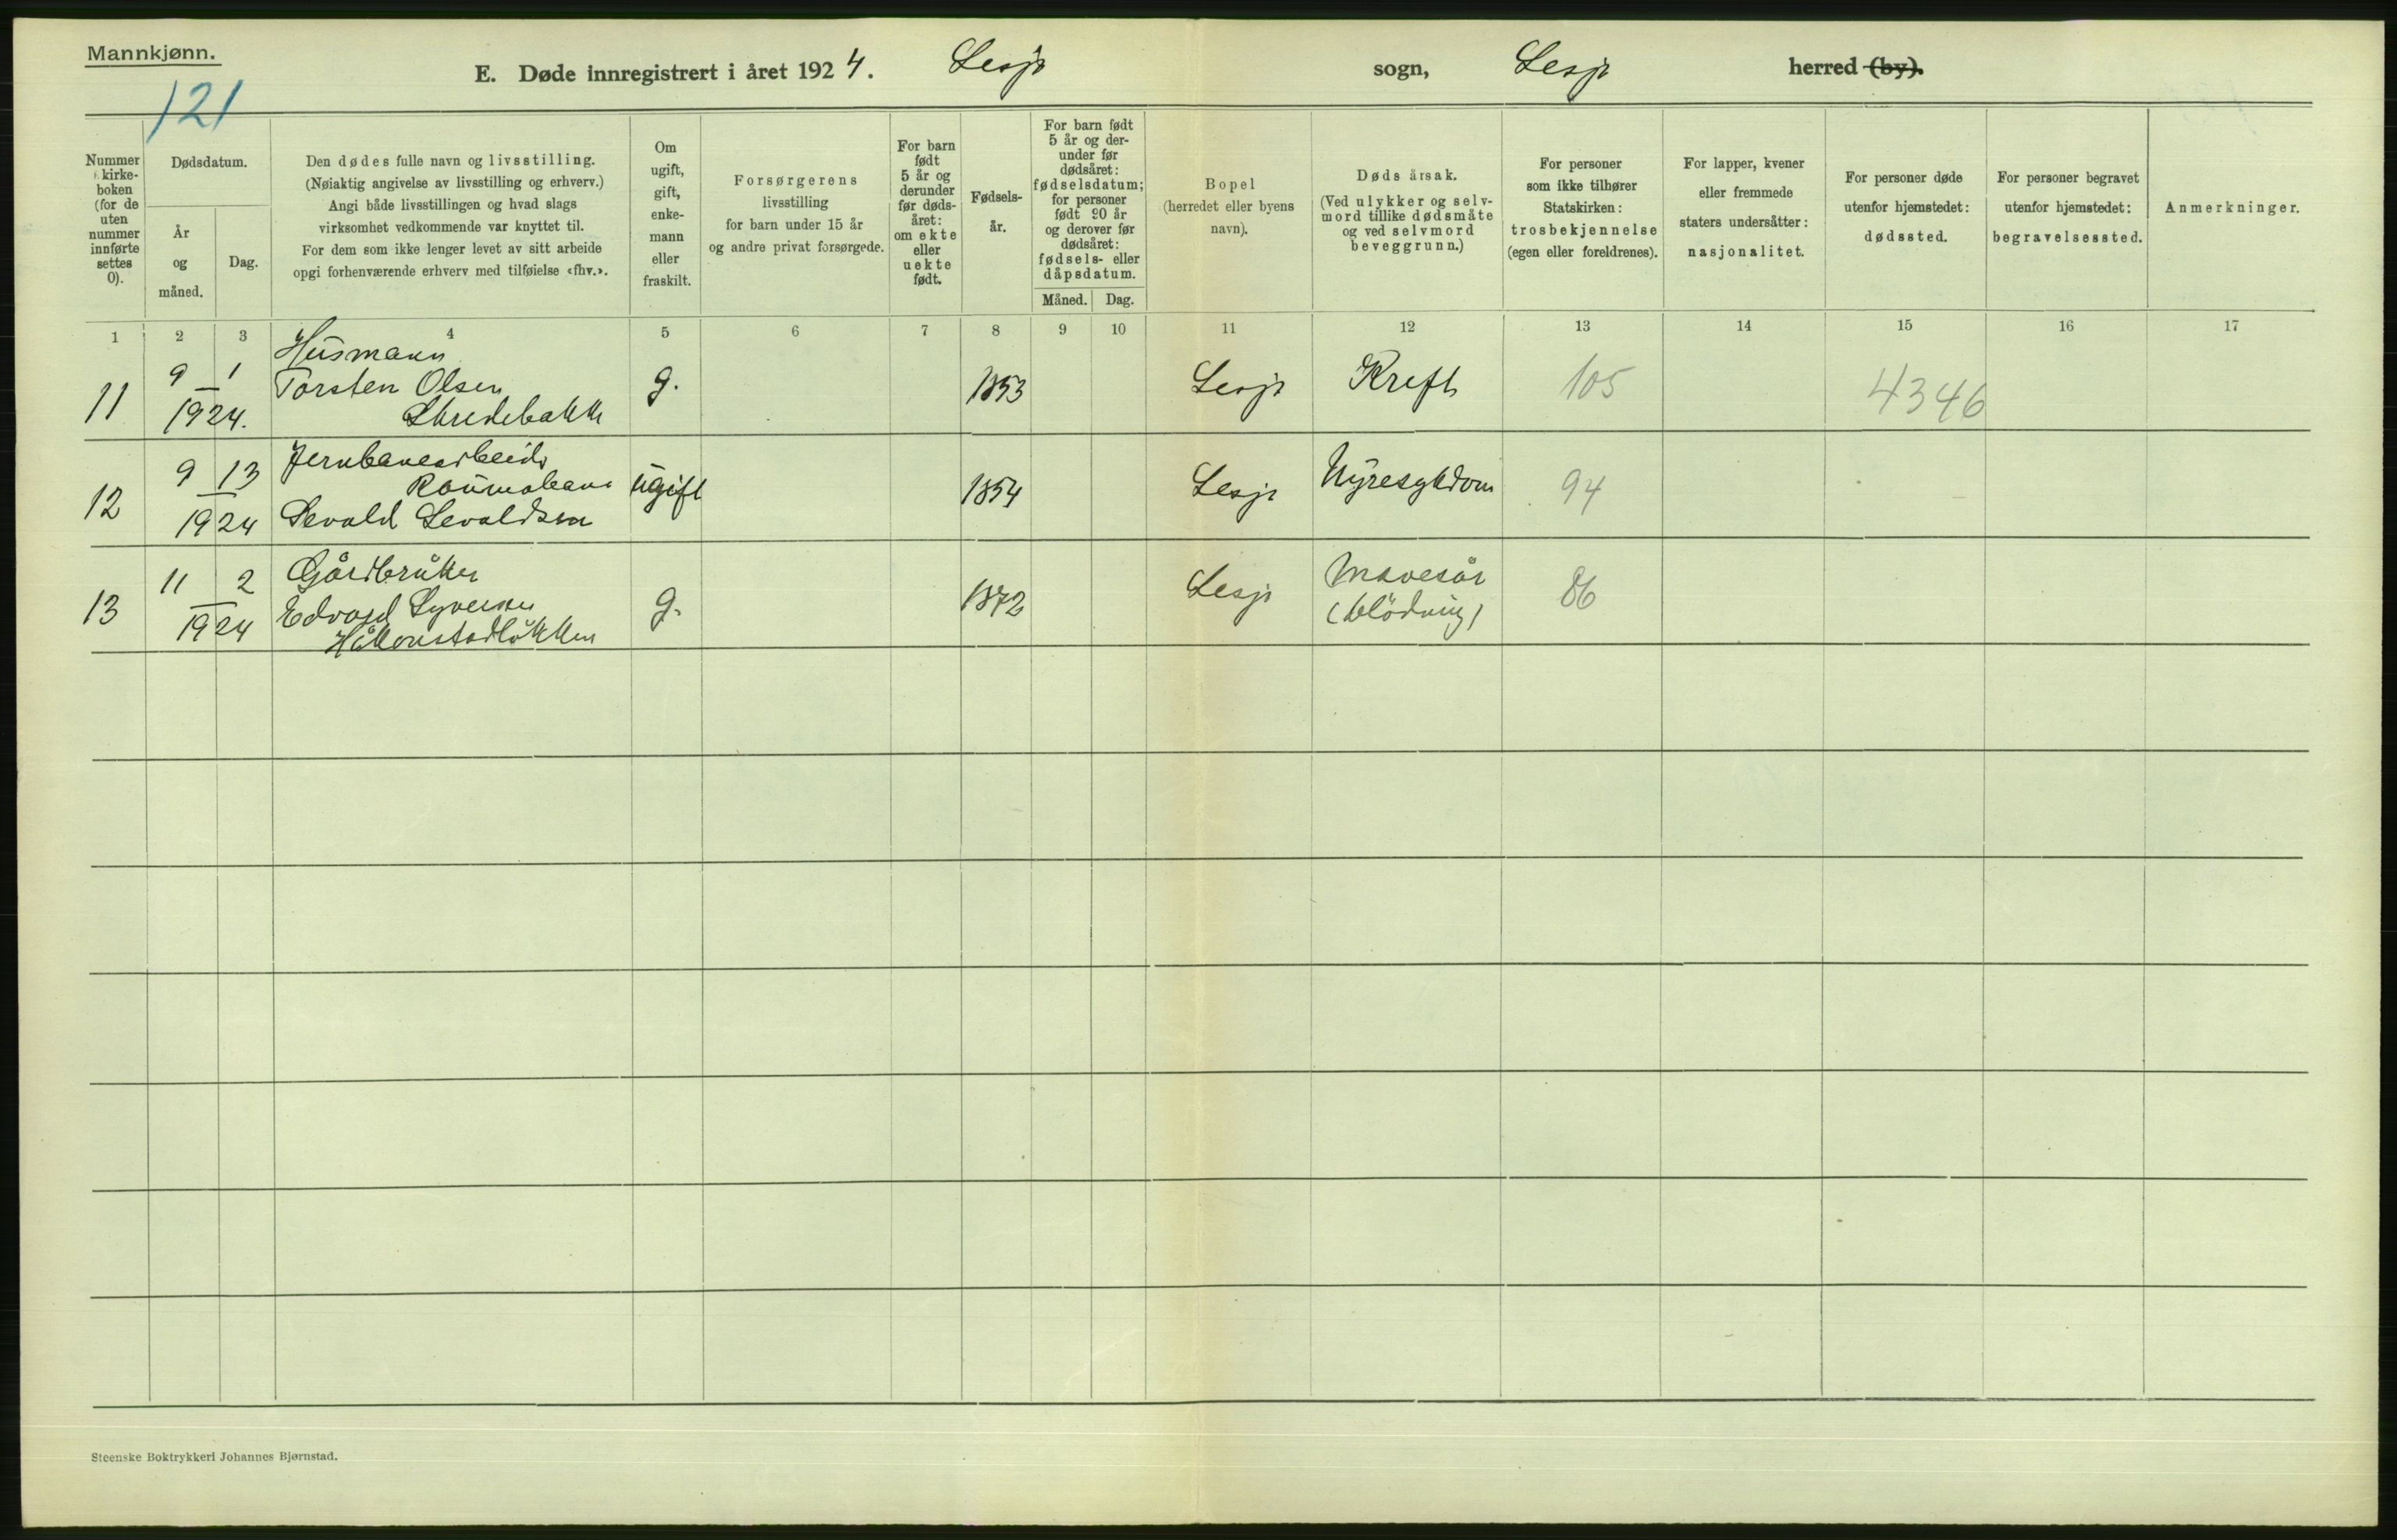 Mannkjønn.
121
E. Døde innregistrert i året 1924. Lesje sogn, Lesje herred (by).
Nummer i kirke-
boken
(for de
uten
nummer
innførte
settes
0).
Dødsdatum.
År
og
måned.
Dag.
Den dødes fulle navn og livsstilling.
(Nøiaktig angivelse av livsstilling og erhverv.)
Angi både livsstillingen og hvad slags
virksomhet vedkommende var knyttet til.
For dem som ikke lenger levet av sitt arbeide
opgi forhenværende erhverv med tilføielse «fhv.».
Om
ugift,
gift,
enke-
mann
eller
fraskilt.
Forsørgerens
livsstilling
for barn under 15 år
og andre privat forsørgede.
For barn
født
5 år og
derunder
før døds-
året:
om ekte
eller
uekte
født.
Fødsels-
år.
For barn født
5 år og der-
under før
dødsåret:
fødselsdatum;
for personer
født 90 år
og derover før
dødsåret:
fødsels- eller
dåpsdatum.
Måned. Dag.
Bopel
(herredet eller byens
navn).
Døds årsak.
(Ved ulykker og selv-
mord tillike dødsmåte
og ved selvmord
beveggrunn.)
For personer
som ikke tilhører
Statskirken:
trosbekjennelse
(egen eller foreldrenes).
For lapper, kvener
eller fremmede
staters undersåtter:
nasjonalitet.
For personer døde
utenfor hjemstedet:
dødssted.
For personer begravet
utenfor hjemstedet:
begravelsessted.
Anmerkninger.
1 2 3 4 5 6 7 8 9 10 11 12 13 14 15 16 17
Husmann
11 9 1 Torsten Olsen g. 1853 Lesje Kreft 105 4346
1924. Skredebakk
Jernbanearbeid.
12 9 13 Raumabane ugift 1854 Lesje Nyresykdom 94
1924 Sevald Sevaldsen
Gårdbruker
13 11 2 Edvard Syversen g. 1872 Lesje Mavesår 86
1924 Håkonstadløkken (blödning)
Steenske Boktrykkeri Johannes Bjørnstad.